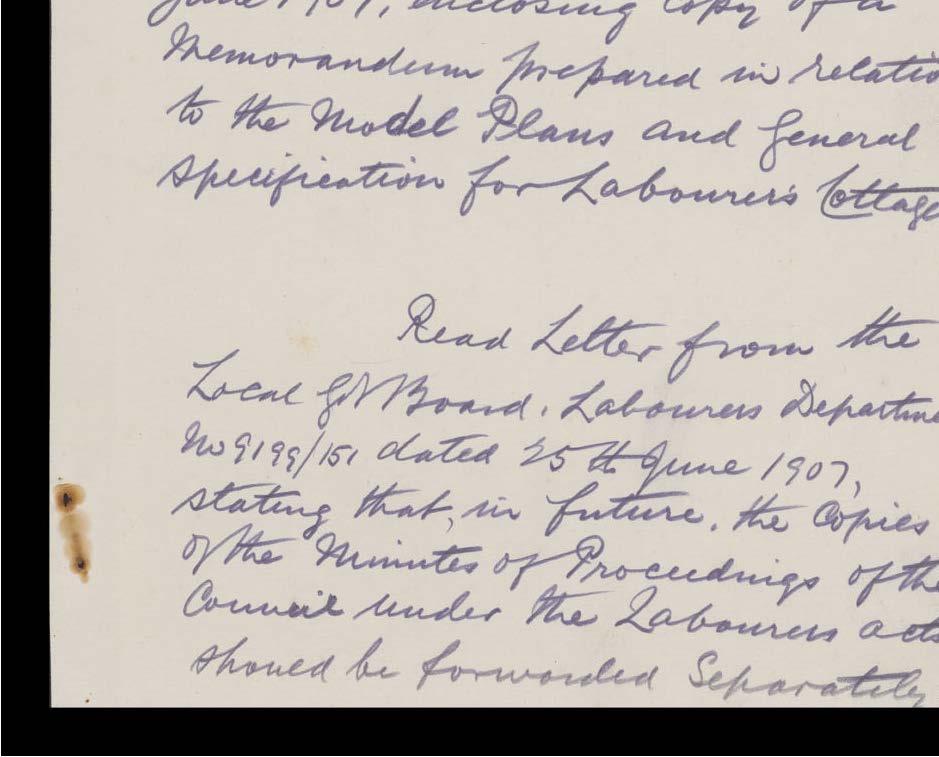 June 1907, enclosing Copy of a
Memorandum prepared in relatio
to the Model Plans and General
specification for Labourer's Cottage
Read Letter from the
Local Gt Board. Labourers Departme
No 9199/151 dated 25th June 1907,
stating that, in future, the Copies
of the Minutes of Proceedings of the
Council under the Labourers acts
should be forwarded Separately